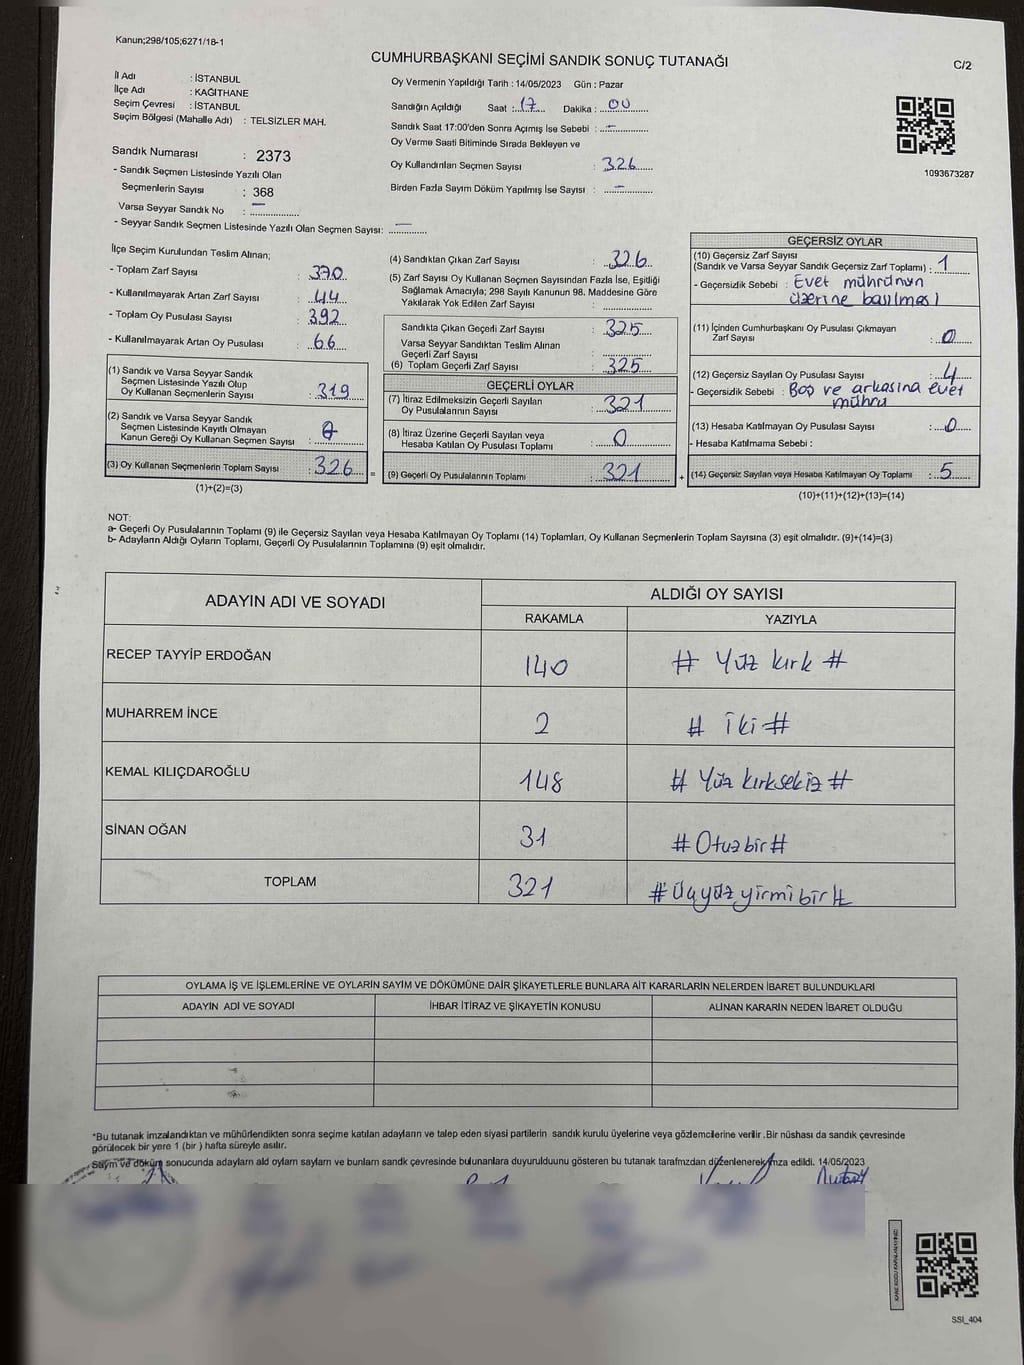 Kanun;298/105;6271/18-1
CUMHURBAŞKANI SEÇİMİ SANDIK SONUÇ TUTANAĞI
C/2
İl Adı : İSTANBUL
İlçe Adı : KAĞITHANE
Seçim Çevresi : İSTANBUL
Seçim Bölgesi (Mahalle Adı) : TELSİZLER MAH.
Sandık Numarası : 2373
- Sandık Seçmen Listesinde Yazılı Olan
Seçmenlerin Sayısı : 368
Varsa Seyyar Sandık No : —
- Seyyar Sandık Seçmen Listesinde Yazılı Olan Seçmen Sayısı: —
Oy Vermenin Yapıldığı Tarih : 14/05/2023 Gün : Pazar
Sandığın Açıldığı Saat : 17 Dakika : 00
Sandık Saat 17:00'den Sonra Açımış İse Sebebi : —
Oy Verme Saati Bitiminde Sırada Bekleyen ve
Oy Kullandırılan Seçmen Sayısı : 326
Birden Fazla Sayım Döküm Yapılmış İse Sayısı : —
1093673287
İlçe Seçim Kurulundan Teslim Alınan;
- Toplam Zarf Sayısı : 370
- Kullanılmayarak Artan Zarf Sayısı : 44
- Toplam Oy Pusulası Sayısı : 392
- Kullanılmayarak Artan Oy Pusulası : 66
(1) Sandık ve Varsa Seyyar Sandık
Seçmen Listesinde Yazılı Olup
Oy Kullanan Seçmenlerin Sayısı : 319
(2) Sandık ve Varsa Seyyar Sandık
Seçmen Listesinde Kayıtlı Olmayan
Kanun Gereği Oy Kullanan Seçmen Sayısı :
(3) Oy Kullanan Seçmenlerin Toplam Sayısı : 326 =
(1)+(2)=(3)
(4) Sandıktan Çıkan Zarf Sayısı : 326
(5) Zarf Sayısı Oy Kullanan Seçmen Sayısından Fazla İse, Eşitliği
Sağlamak Amacıyla; 298 Sayılı Kanunun 98. Maddesine Göre
Yakılarak Yok Edilen Zarf Sayısı :
Sandıkta Çıkan Geçerli Zarf Sayısı : 325
Varsa Seyyar Sandıktan Teslim Alınan
Geçerli Zarf Sayısı :
(6) Toplam Geçerli Zarf Sayısı : 325
GEÇERLİ OYLAR
(7) İtiraz Edilmeksizin Geçerli Sayılan
Oy Pusulalarının Sayısı : 321
(8) İtiraz Üzerine Geçerli Sayılan veya
Hesaba Katılan Oy Pusulası Toplamı : 0
(9) Geçerli Oy Pusulalarının Toplamı : 321 +
GEÇERSİZ OYLAR
(10) Geçersiz Zarf Sayısı
(Sandık ve Varsa Seyyar Sandık Geçersiz Zarf Toplamı) : 1
- Geçersizlik Sebebi : Evet mührünün
üzerine basılması
(11) İçinden Cumhurbaşkanı Oy Pusulası Çıkmayan
Zarf Sayısı : 0
(12) Geçersiz Sayılan Oy Pusulası Sayısı : 4
- Geçersizlik Sebebi : Boş ve arkasına evet
mührü
(13) Hesaba Katılmayan Oy Pusulası Sayısı : 0
- Hesaba Katılmama Sebebi :
(14) Geçersiz Sayılan veya Hesaba Katılmayan Oy Toplamı : 5
(10)+(11)+(12)+(13)=(14)
NOT:
a- Geçerli Oy Pusulalarının Toplamı (9) ile Geçersiz Sayılan veya Hesaba Katılmayan Oy Toplamı (14) Toplamları, Oy Kullanan Seçmenlerin Toplam Sayısına (3) eşit olmalıdır. (9)+(14)=(3)
b- Adayların Aldığı Oyların Toplamı, Geçerli Oy Pusulalarının Toplamına (9) eşit olmalıdır.
ADAYIN ADI VE SOYADI
ALDIĞI OY SAYISI
RAKAMLA YAZIYLA
RECEP TAYYİP ERDOĞAN 140 # Yüz kırk #
MUHARREM İNCE 2 # İki #
KEMAL KILIÇDAROĞLU 148 # Yüz kırksekiz #
SİNAN OĞAN 31 # Otuzbir #
TOPLAM 321 # Üçyüzyirmibir #
OYLAMA İŞ VE İŞLEMLERİNE VE OYLARIN SAYIM VE DÖKÜMÜNE DAİR ŞİKAYETLERLE BUNLARA AİT KARARLARIN NELERDEN İBARET BULUNDUKLARI
ADAYIN ADI VE SOYADI İHBAR İTİRAZ VE ŞİKAYETİN KONUSU ALINAN KARARIN NEDEN İBARET OLDUĞU
*Bu tutanak imzalandıktan ve mühürlendikten sonra seçime katılan adayların ve talep eden siyasi partilerin sandık kurulu üyelerine veya gözlemcilerine verilir .Bir nüshası da sandık çevresinde
görülecek bir yere 1 (bir ) hafta süreyle asılır.
Sayım ve döküm sonucunda adayların ald oyların sayların ve bunların sandk çevresinde bulunanlara duyurulduunu gösteren bu tutanak tarafmzdan düzenlenerek imza edildi. 14/05/2023
SSİ_404